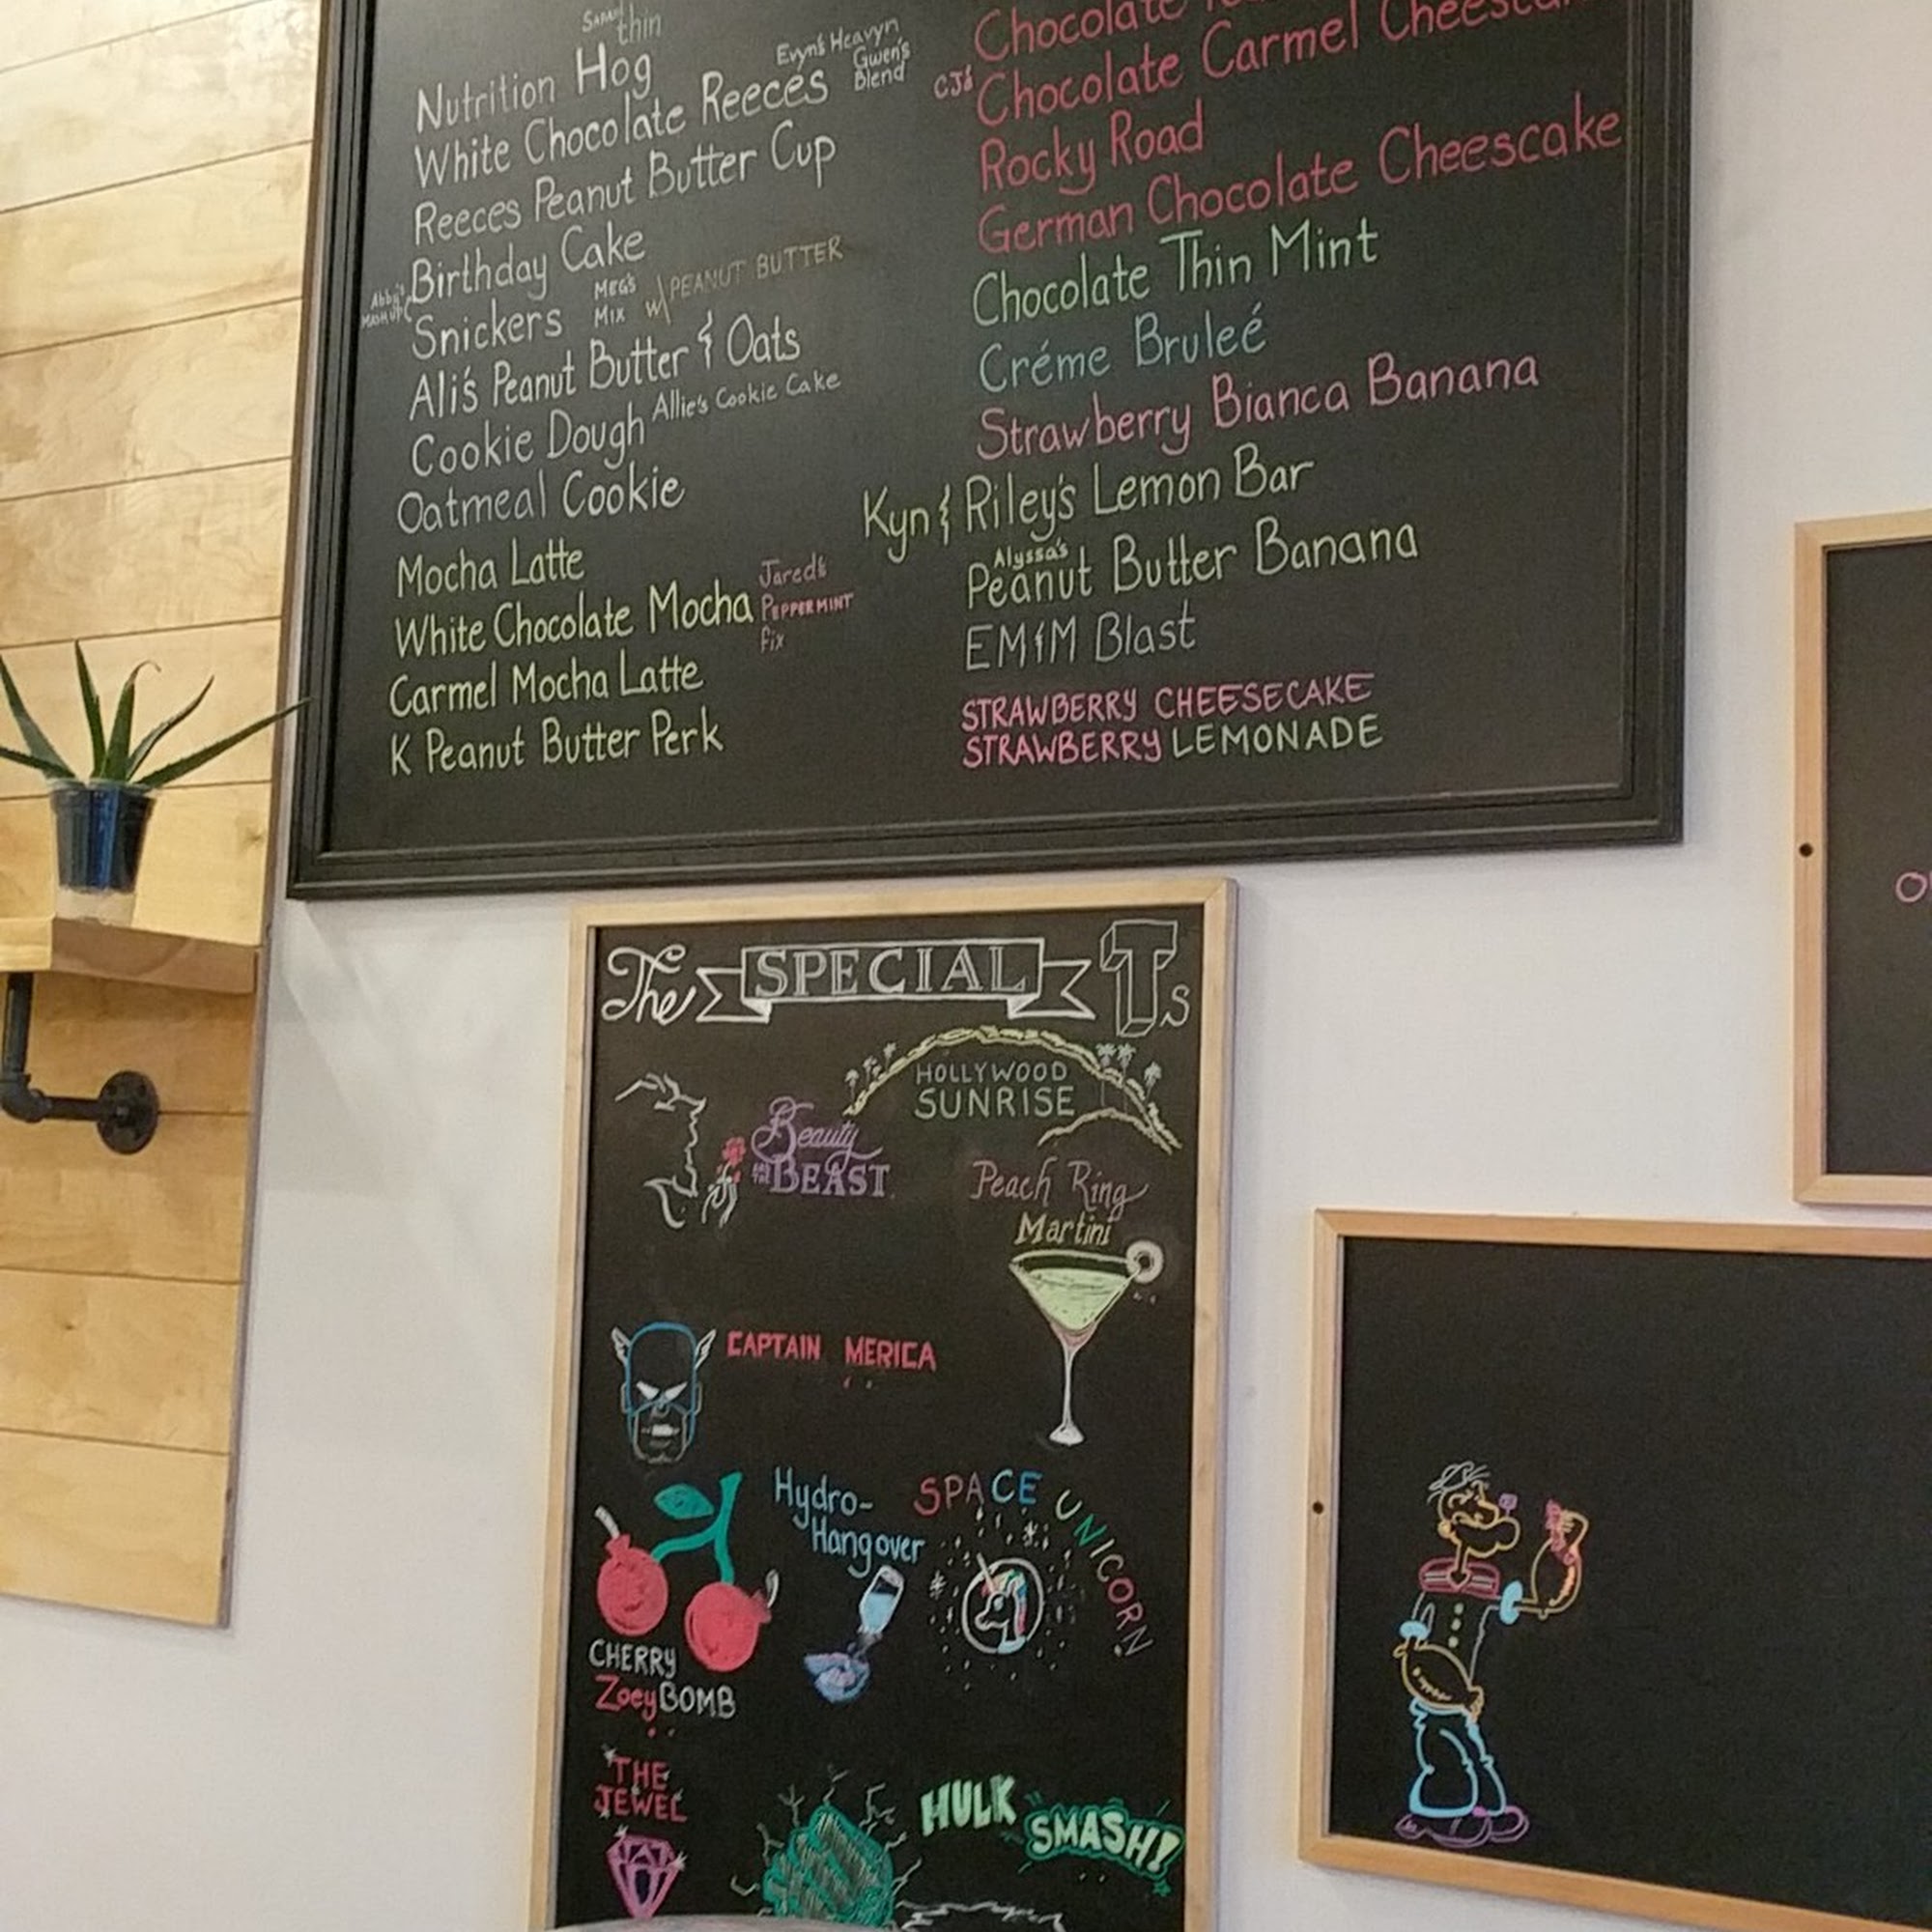 thin
Nutrition Hog
Evyn's Heavyn
White Chocolate Reeces
Gwen's
Blend
Reeces Peanut Butter Cup
Abby's
MASHUP
Birthday Cake
Snickers
MEG'S
MIX
w/PEANUT BUTTER
Ali's Peanut Butter & Oats
Cookie Dough Allie's Cookie Cake
Oatmeal Cookie
Mocha Latte
White Chocolate Mocha
Jared's
PEPPERMINT
fix
Carmel Mocha Latte
K Peanut Butter Perk
Chocolate
CJ's Chocolate Carmel
Rocky Road
German Chocolate Cheescake
Chocolate Thin Mint
Créme Bruleé
Strawberry Bianca Banana
Kyn & Riley's Lemon Bar
Alyssa's
Peanut Butter Banana
EM&M Blast
STRAWBERRY CHEESECAKE
STRAWBERRY LEMONADE
The SPECIAL Ts
HOLLYWOOD
SUNRISE
Beauty
AND THE BEAST
Peach Ring
Martini
CAPTAIN MERICA
Hydro-
Hangover
SPACE UNICORN
CHERRY
Zoey BOMB
THE
JEWEL
HULK
SMASH!